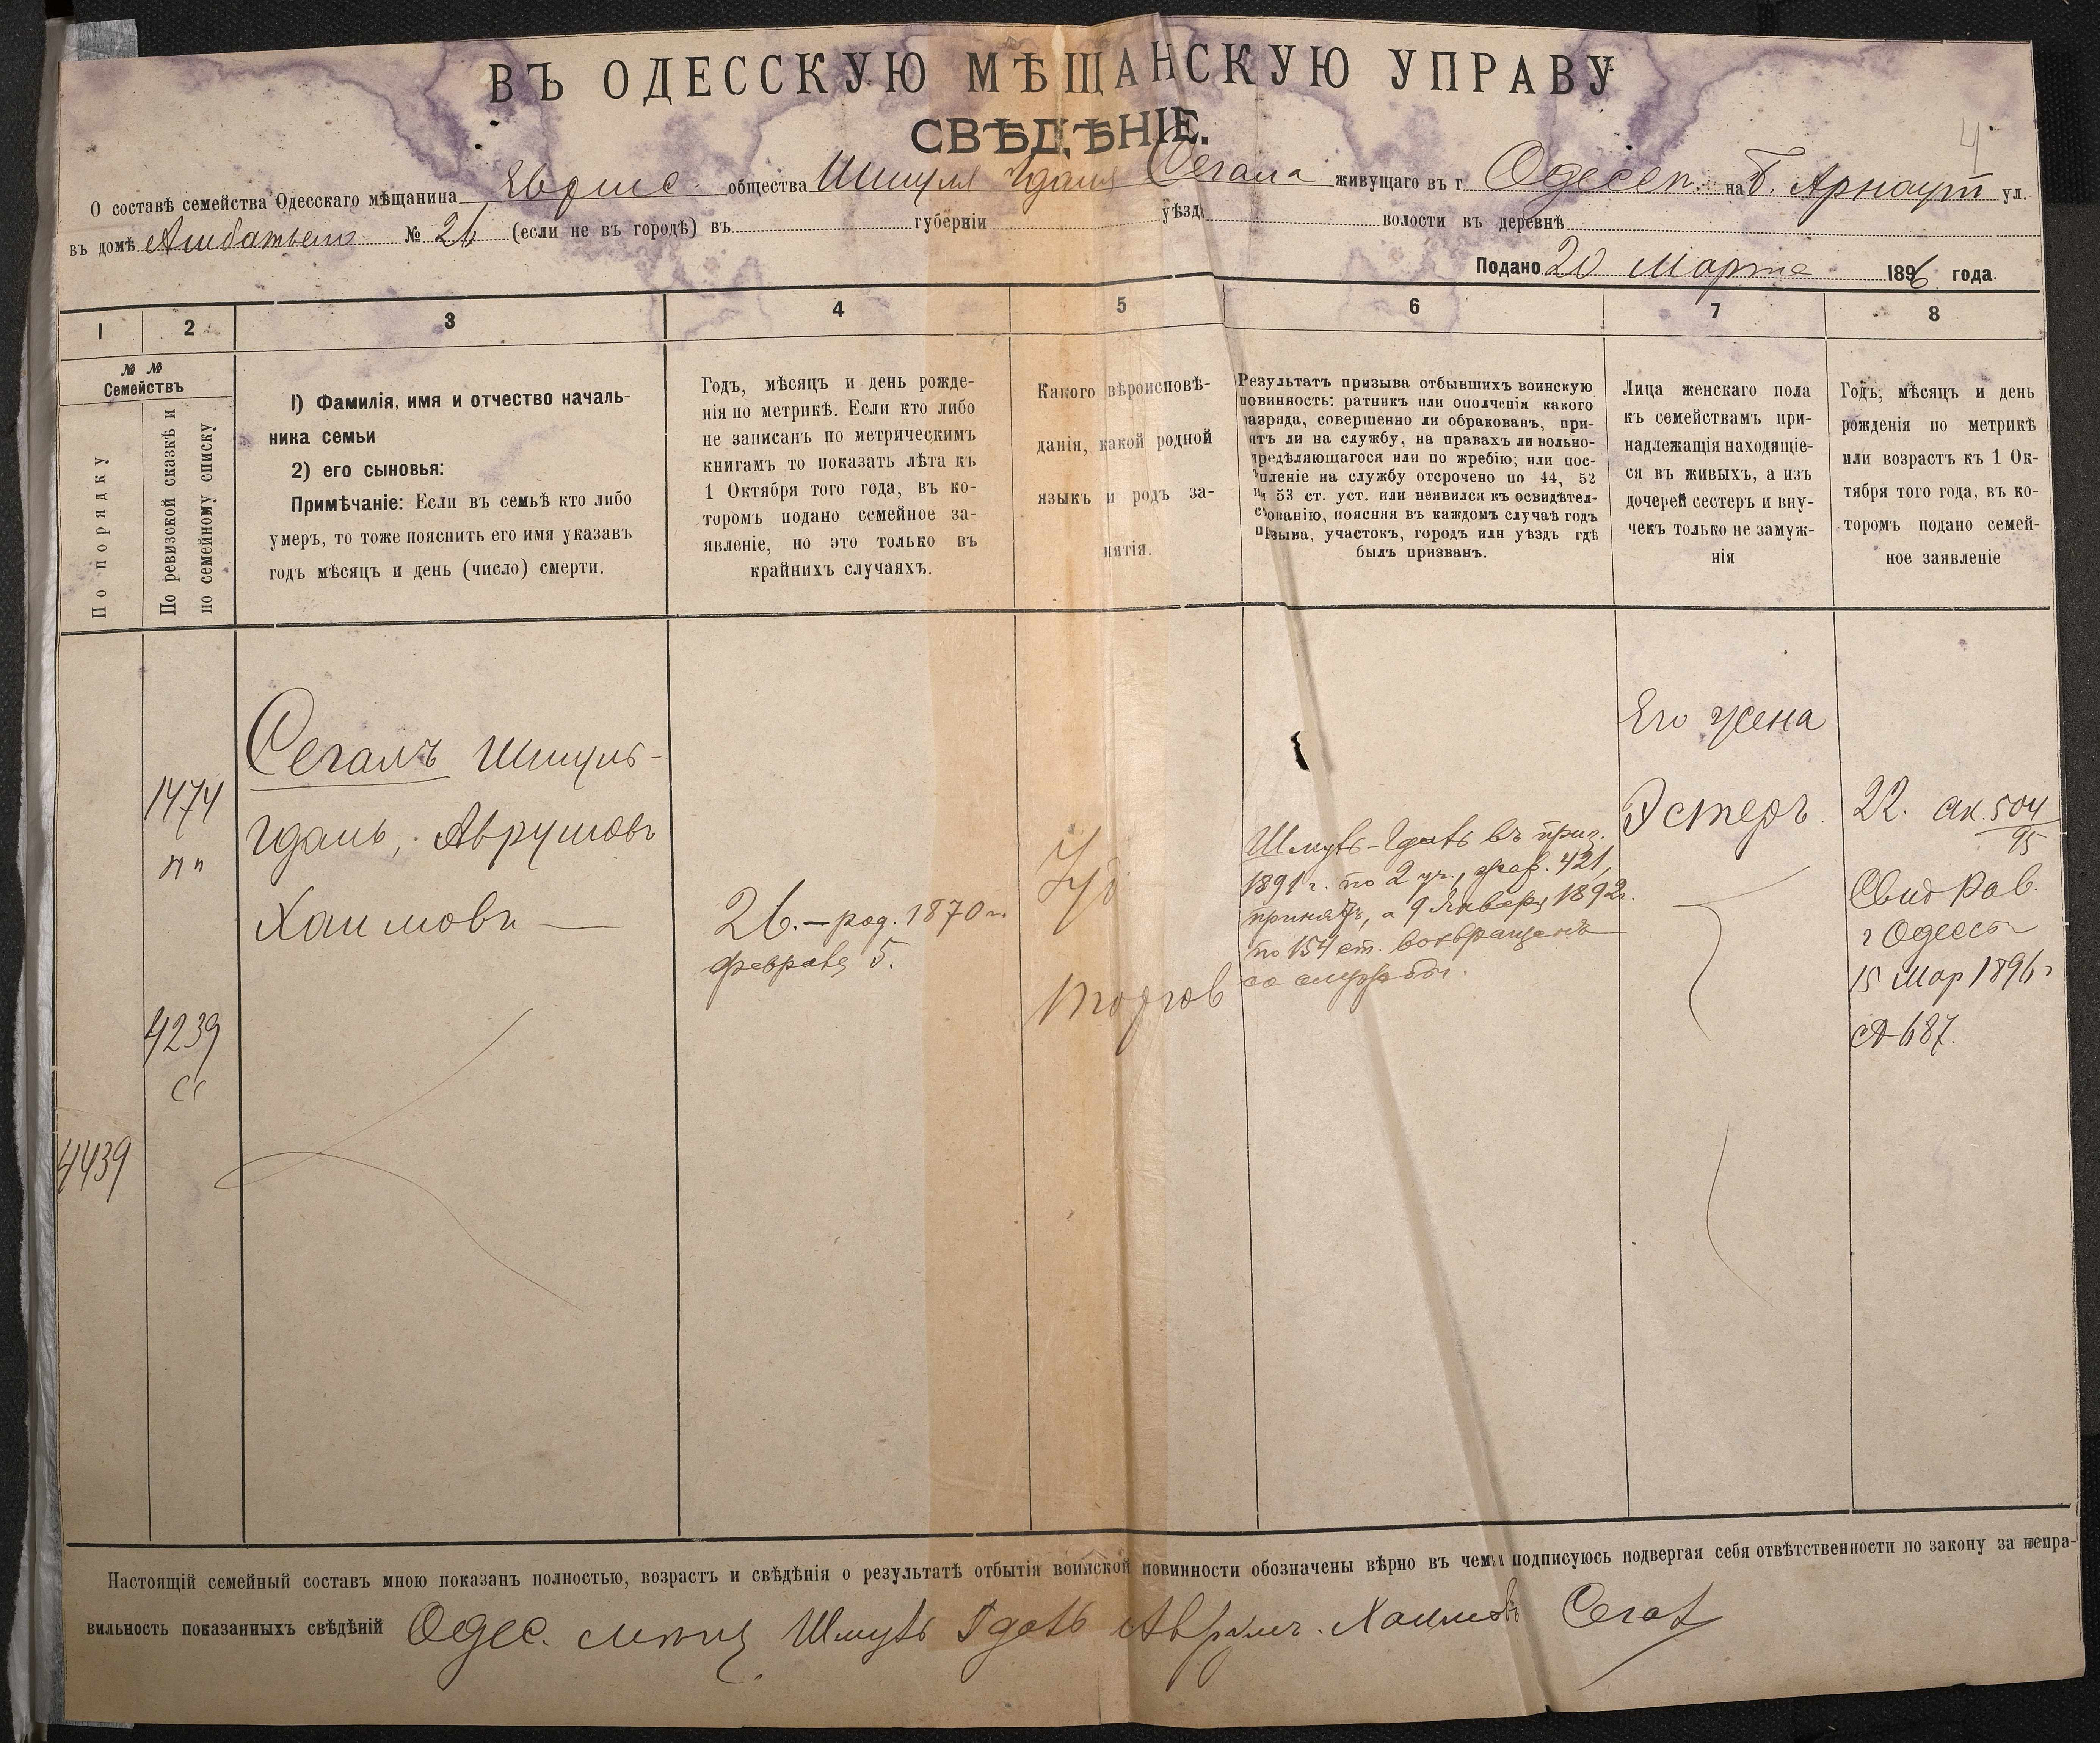 ВЪ ОДЕССКУЮ МѢЩАНСКУЮ УПРАВУ
СВѢДѢНІЕ.
4
О составѣ семейства Одесскаго мѣщанина Еврейс. общества Шмуля Гдаля Сегала живущаго въ г. Одессѣ на Б. Арнаут ул.
въ домѣ № 26 (если не въ городѣ) въ губерніи уѣзд волости въ деревнѣ
Подано 20 Марта 1896 года.
1 2 3 4 5 6 7 8
№ №
Семействъ
По порядку
По ревизской сказкѣ и
по семейному списку
1) Фамилія, имя и отчество началь-
ника семьи
2) его сыновья:
Примѣчаніе: Если въ семьѣ кто либо
умеръ, то тоже пояснить его имя указавъ
годъ мѣсяцъ и день (число) смерти.
Годъ, мѣсяцъ и день рожде-
нія по метрикѣ. Если кто либо
не записанъ по метрическимъ
книгамъ то показать лѣта къ
1 Октября того года, въ ко-
торомъ подано семейное за-
явленіе, но это только въ
крайнихъ случаяхъ.
Какого вѣроисповѣ-
данія, какой родной
языкъ и родъ за-
нятія.
Результатъ призыва отбывшихъ воинскую
повинность: ратникъ или ополченія какого
разряда, совершенно ли обракованъ, при-
ятъ ли на службу, на правахъ ли вольно-
предѣляющагося или по жребію; или пос-
упленіе на службу отсрочено по 44, 52
и 53 ст. уст. или неявился къ освидѣтел-
ьствованію, поясняя въ каждомъ случаѣ годъ
призыва, участокъ, городъ или уѣздъ гдѣ
былъ призванъ.
Лица женскаго пола
къ семействамъ при-
надлежащія находящіе-
ся въ живыхъ, а изъ
дочерей сестеръ и вну-
чекъ только не замуж-
нія
Годъ, мѣсяцъ и день
рожденія по метрикѣ
или возрастъ къ 1 Ок-
тября того года, въ ко-
торомъ подано семей-
ное заявленіе
1474
пп
4239
сс
4439
Сегалъ Шмуль-
Гдаль, Аврумовъ
Хаимовъ
26. – род. 1870 г.
февраля 5.
Іуд
торгов
Шмуль-Гдаль въ приз.
1891 г. по 2 уч., жер. 421,
принятъ, а 9 Января 1892 г.
по 154 ст. возвращенъ
со службы.
Его жена
Эстеръ
22. ак. 504
95
Свид Рав.
г Одессы
15 Мар 1896 г
№ 687.
Настоящій семейный составъ мною показанъ полностью, возрастъ и свѣдѣнія о результатѣ отбытія воинской повинности обозначены вѣрно въ чемъ и подписуюсь подвергая себя отвѣтственности по закону за непра-
вильность показанныхъ свѣдѣній Одес. мѣщ. Шмуль Гдаль Аврум. Хаимовъ Сегал